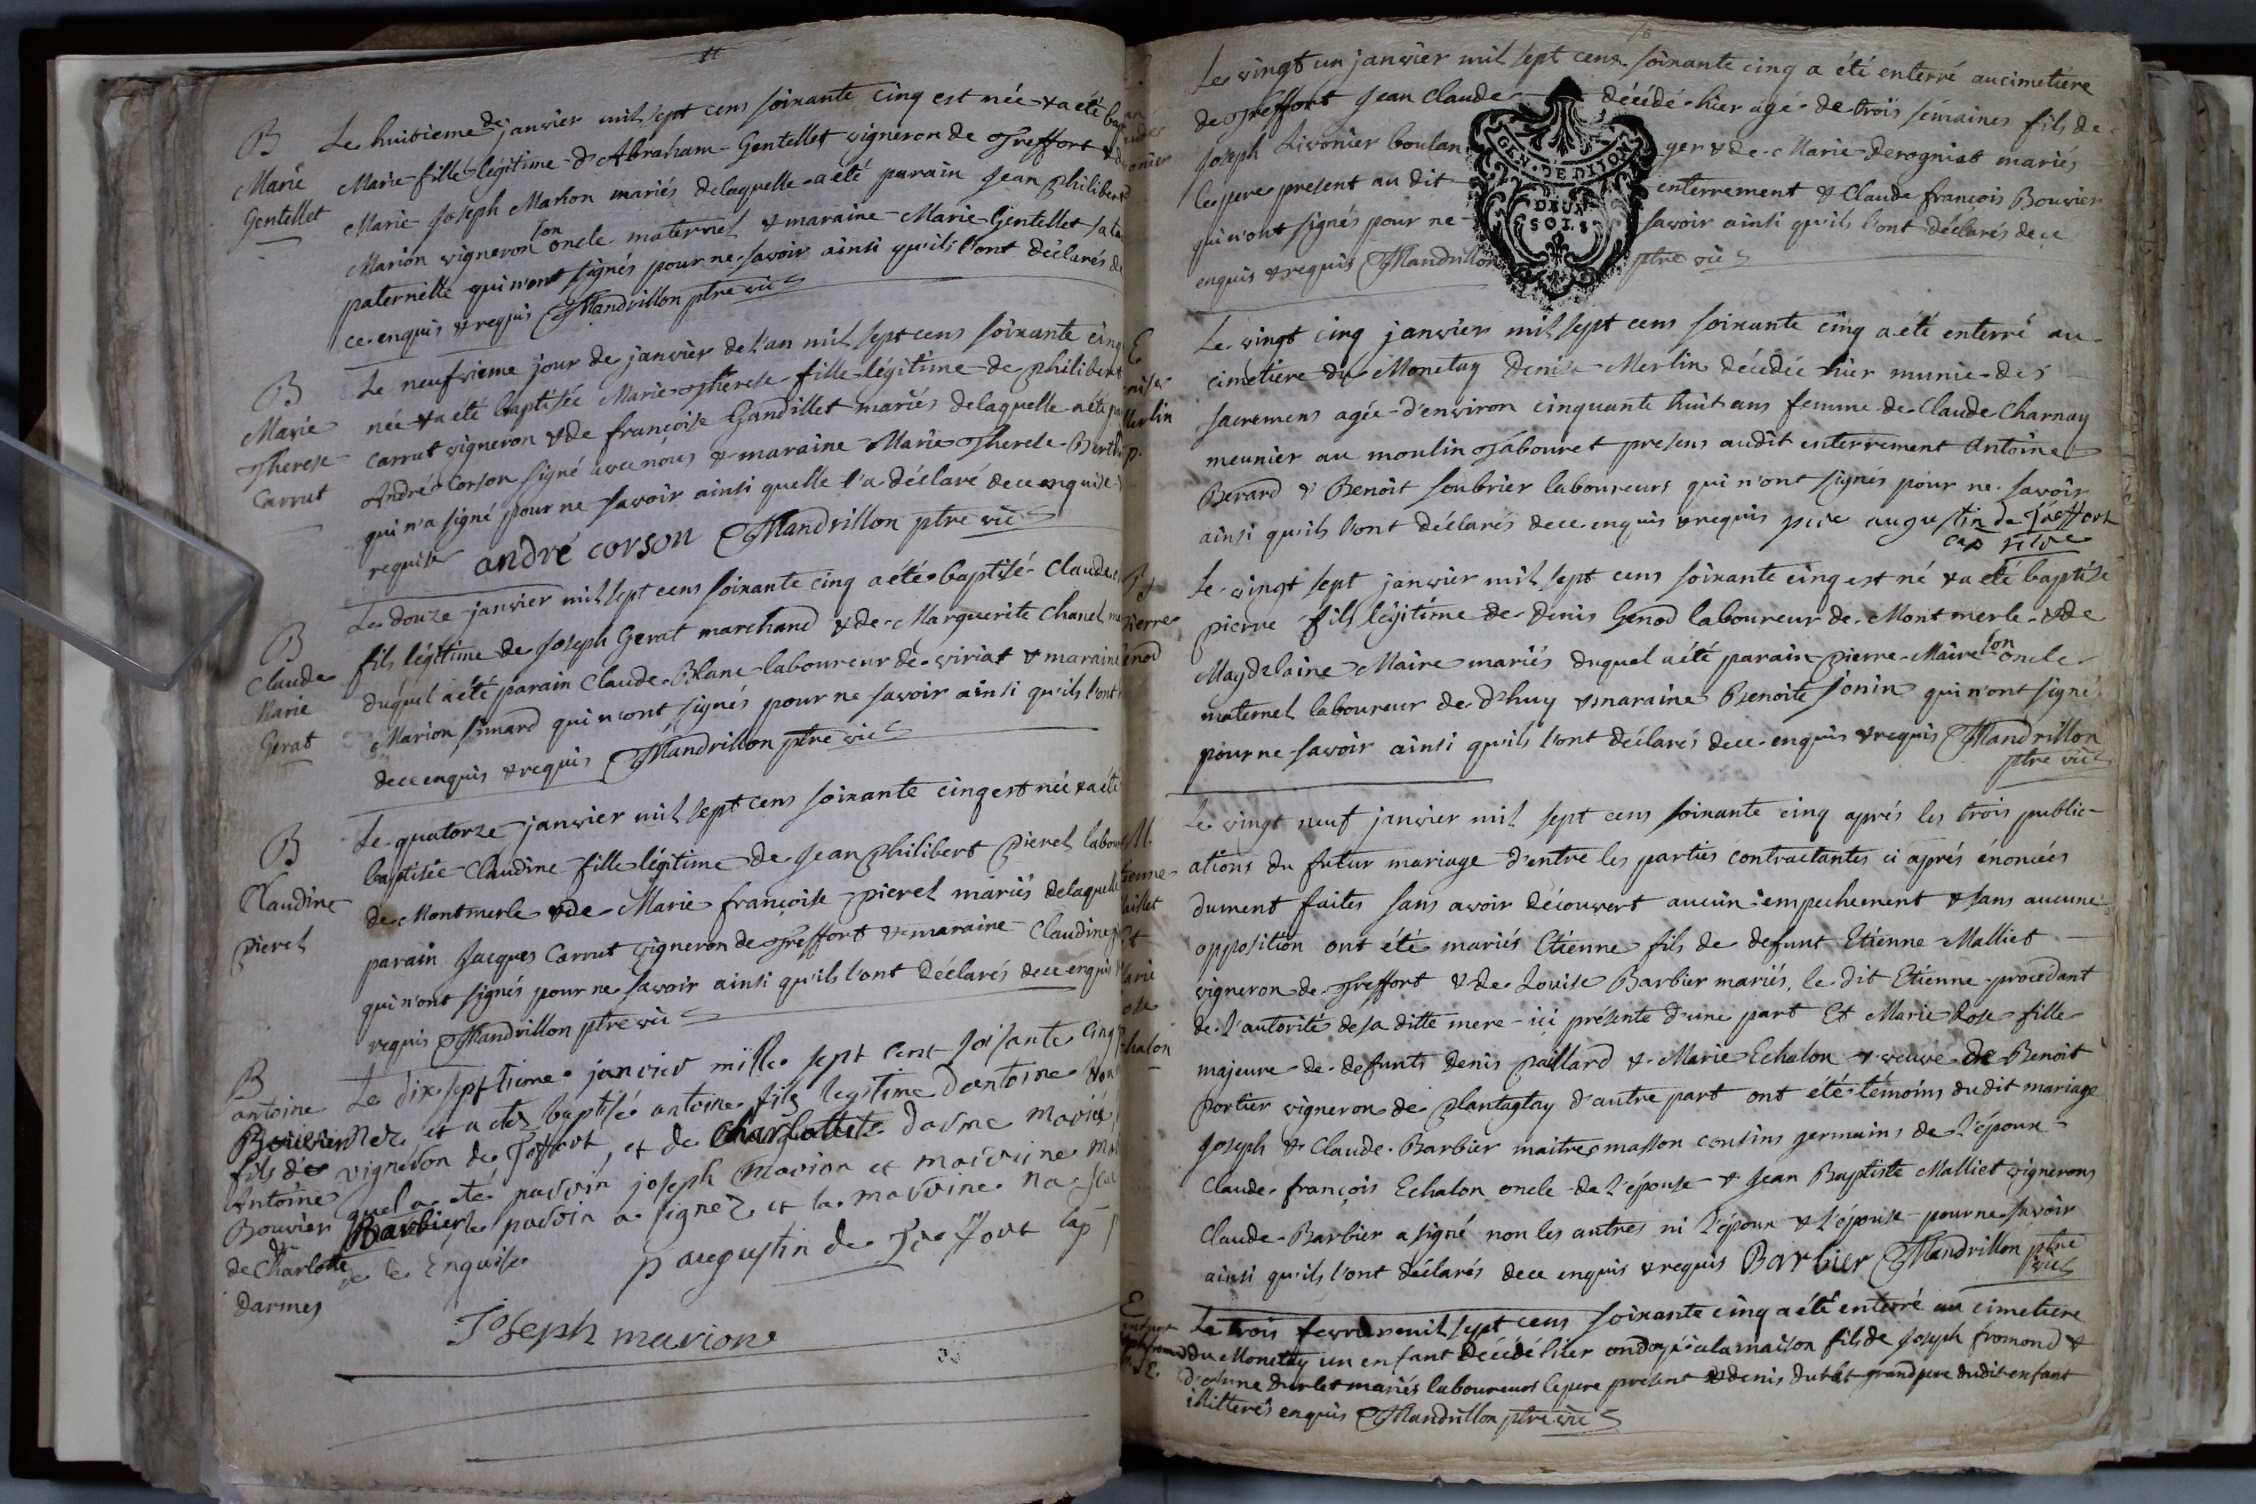 B
Marie
Gentellet
Le huitieme de janvier mil sept cens soixante cinq est née & a été bap
Marie fille légitime d'Abraham Gentellet vigneron de Treffort & de
Marie Joseph Marion mariés delaquelle a été parain Jean Philibert
Marion vigneron son oncle maternel & maraine Marie Gentellet sa ta
paternelle qui n'ont signés pour ne savoir ainsi qu'ils l'ont déclarés de
ce enquis & requis Mandrillon ptre vic
B
Marie
Therese
Carrut
Le neufvieme jour de janvier de l'an mil sept cens soixante cinq
née & a été baptisée Marie Therese fille légitime de Philibert
Carrut vigneron & de françoise Gandillet mariés delaquelle a été pa
André Corson signé avec nous & maraine Marie Therese
qui n'a signé pour ne savoir ainsi quelle l'a déclaré de ce enquise &
requise andré corson Mandrillon ptre vic
B
Claude
Marie
Gerat
Le douze janvier mil sept cens soixante cinq a été baptisé Claude
fils légitime de Joseph Gerat marchand & de Marguerite Chanel ma
duquel a été parain Claude Blanc laboureur de viriat & maraine
Marion simard qui n'ont signés pour ne savoir ainsi qu'ils l'ont
de ce enquis & requis Mandrillon ptre vic
B
Claudine
pierel
Le quatorze janvier mil sept cens soixante cinq est née & a été
baptisée Claudine fille légitime de Jean Philibert pierel labou
de Montmerle & de Marie françoise pierel mariés delaquelle
parain Jacques Carrut vigneron de Treffort & maraine Claudine
qui n'ont signés pour ne savoir ainsi qu'ils l'ont déclarés de ce enquis
requis Mandrillon ptre vic
B
antoine
Bouvier
fils de
Antoine
Bouvier
&
de Charlotte
darmes
Le dix septieme janvier mille sept cent soisante cinq
nez et a etez baptisé antoine fils legitime dantoine
vigneron de Treffort, et de charlotte darme mariés
quel a eté parrin joseph marion et marrine
Barbier le parrin a signez et la marrine na
de ce enquise p augustin de Treffort cap
Joseph marion
Le vingt un janvier mil sept cens soixante cinq a été enterré au cimetiére
de Treffort Jean Claude décédé hier agé de trois semaines fils de
Joseph Livonier boulan ger & de Marie derogniat mariés
le pere present au dit enterrement & Claude françois Bouvier
qui n'ont signés pour ne savoir ainsi qu'ils l'ont déclarés de ce
enquis & requis Mandrillon ptre vic
GEN · DE DIJON
DEUX
SOLS
E
Merlin
Le vingt cinq janvier mil sept cens soixante cinq a été enterré au
cimetiere du Monetay Denise Merlin décédée hier munie des
sacremens agée d'environ cinquante huit ans femme de Claude Charnay
meunier au moulin Tabouret presens audit enterrement Antoine
Berard & Benoit soubrier laboureurs qui n'ont signés pour ne savoir
ainsi qu'ils l'ont déclarés de ce enquis & requis pere augustin de Treffort
cap
B
pierre
enod
Le vingt sept janvier mil sept cens soixante cinq est né & a été baptisé
pierre fils légitime de Denis Genod laboureur de Montmerle & de
Magdelaine Maire mariés duquel a été parain pierre Maire son oncle
maternel laboureur de d'huy & maraine Benoite sonin qui n'ont signé
pour ne savoir ainsi qu'ils l'ont déclarés de ce enquis & requis Mandrillon
ptre vic
M.
tienne
&
Marie
ose
chalon
Le vingt neuf janvier mil sept cens soixante cinq aprés les trois public-
ations du futur mariage d'entre les parties contractantes ci aprés énoncées
dument faites sans avoir découvert aucun empechement & sans aucune
opposition ont été mariés Etienne fils de defunt Etienne Malliet
vigneron de Treffort & de Louise Barbier mariés, le dit Etienne procedant
de l'autorité de sa ditte mere ici présente d'une part Et Marie Rose fille
majeure de defunts Denis paillard & Marie Echalon & veuve de Benoit
portier vigneron de plantaglay d'autre part ont été témoins du dit mariage
Joseph & Claude Barbier maitres masson cousins germains de l'époux
Claude françois Echalon oncle de l'épouse & Jean Baptiste Malliet vignerons
Claude Barbier a signé non les autres ni l'époux & l'épouse pour ne savoir
ainsi qu'ils l'ont déclarés de ce enquis & requis Barbier Mandrillon ptre
vic
E
Le trois fevrier mil sept cens soixante cinq a été enterré au cimetiere
du Monetay un enfant décédé hier ondoyé a la maison fils de Joseph fromond &
durlet mariés laboureurs le pere present & denis durlet grand pere dudit enfant
illitterés enquis Mandrillon ptre vic